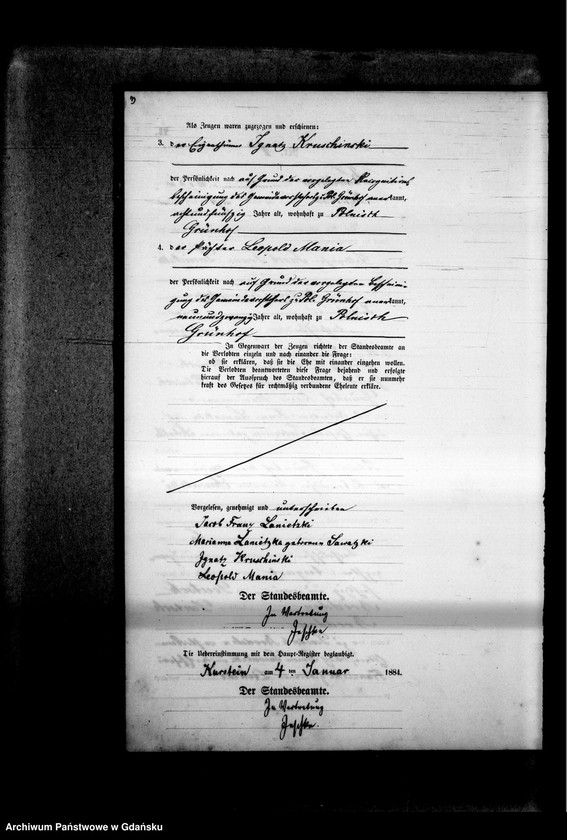 Als Zeugen waren zugezogen und erschienen:
3. der Eigenthümer Ignatz Kruschinski
der Persönlichkeit nach auf Grund der vorgelegten Recognitions
bescheinigung des Gemeindevorstehers zu Pol. Grünhof anerkannt,
achtundfünfzig Jahre alt, wohnhaft zu Polnisch
Grünhof
4. der Pächter Leopold Mania
der Persönlichkeit nach auf Grund der vorgelegten Bescheini
gung des Gemeindevorstehers zu Pol. Grünhof anerkannt,
neunundzwanzig Jahre alt, wohnhaft zu Polnisch
Grünhof
In Gegenwart der Zeugen richtete der Standesbeamte an
die Verlobten einzeln und nach einander die Frage:
ob sie erklären, daß sie die Ehe mit einander eingehen wollen.
Die Verlobten beantworteten diese Frage bejahend und erfolgte
hierauf der Ausspruch des Standesbeamten, daß er sie nunmehr
kraft des Gesetzes für rechtmäßig verbundene Eheleute erkläre.
Vorgelesen, genehmigt und unterschrieben
Jacob Franz Lanietzki
Marianna Lanietzka geborene Sawatzki
Ignatz Kruschinski
Leopold Mania
Der Standesbeamte.
In Vertretung
Jeschke.
Die Uebereinstimmung mit dem Haupt-Register beglaubigt.
am 4 ten Januar 1884.
Der Standesbeamte.
In Vertretung
Jeschke.
Archiwum Państwowe w Gdańsku